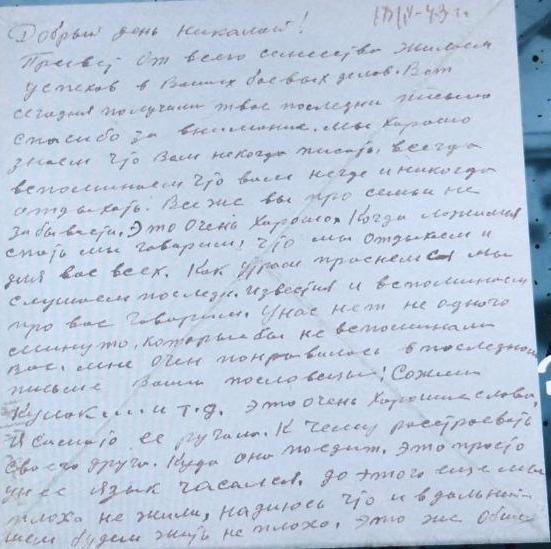 18/IV-43 г.
Добрый день Николай!
Привет от всего семейства желаем
успехов в Ваших боевых делов. Вот
сегодня получили твое последни письмо
спасибо за внимание. мы хорошо
знаем что Вам некогда писать, всегда
вспоминаем что вам негде и никогда
отдыхать. Все же вы про семьи не
забываете. Это очень хорошо. Когда ложимся
спать мы говорим, что мы отдыхаем и
для вас всех. Как утром проснемся мы
слушаем последн. известия и вспоминаем
про вас говорим. У нас нет не одного
минуто, которые бы не вспоминали
Вас. мне очен понравилось в последном
письме Ваши пословецы! Сожми
Кулак и и т.д. это очень хорошие слова,
Я сама ее ругала. К чему растроевать
своего друга. Куда она поедит. Это просто
у нее язык чесался. до этого еще мы
плохо не жили, надиюсь что и в дальней-
шем будем жить не плохо. Это же